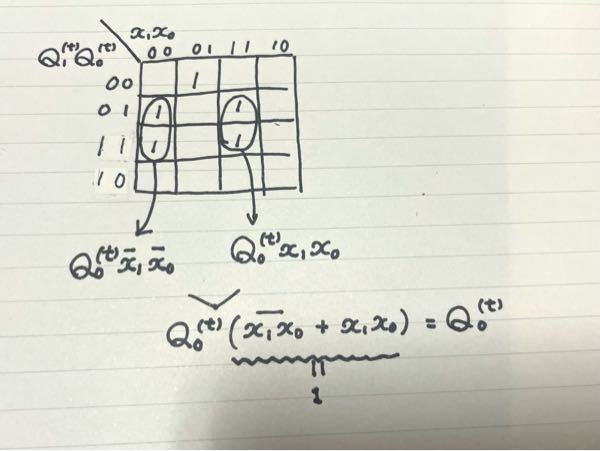 x₁x₀
Q₁⁽ᵗ⁾Q₀⁽ᵗ⁾ 00 01 11 10
00 1
01 1 1
11 1 1
10
Q₀⁽ᵗ⁾x̄₁x̄₀ Q₀⁽ᵗ⁾x₁x₀
Q₀⁽ᵗ⁾(x̅₁̅x̅₀ + x₁x₀) = Q₀⁽ᵗ⁾
=
1